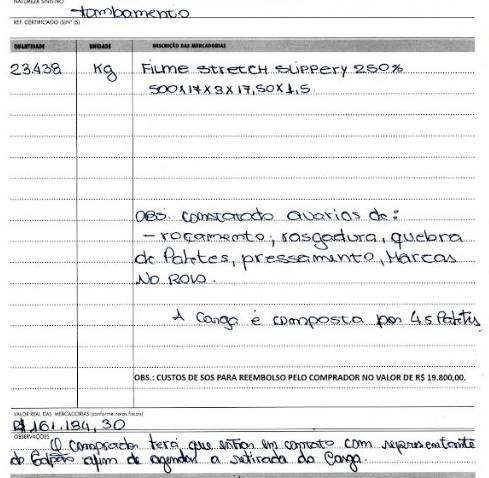 NATUREZA SINISTRO
tombamento
REF. CERTIFICADO (S/Nº IS)
QUANTIDADE UNIDADE DESCRIÇÃO DAS MERCADORIAS
23.438 Kg FILME STRETCH SLIPPERY 250%
500X17X3X17,50X1,5
OBS. constatado avarias de:
- roçamento, rasgadura, quebra
de Paletes, pressamento, Marcas
No Rolo.
A Carga é composta por 45 Paletes
OBS.: CUSTOS DE SOS PARA REEMBOLSO PELO COMPRADOR NO VALOR DE R$ 19.800,00.
VALOR REAL DAS MERCADORIAS (conforme notas fiscais)
R$ 161.194,30
OBSERVAÇÕES O comprador terá que entrar em contato com representante
do Galpão afim de agendar a retirada da Carga.